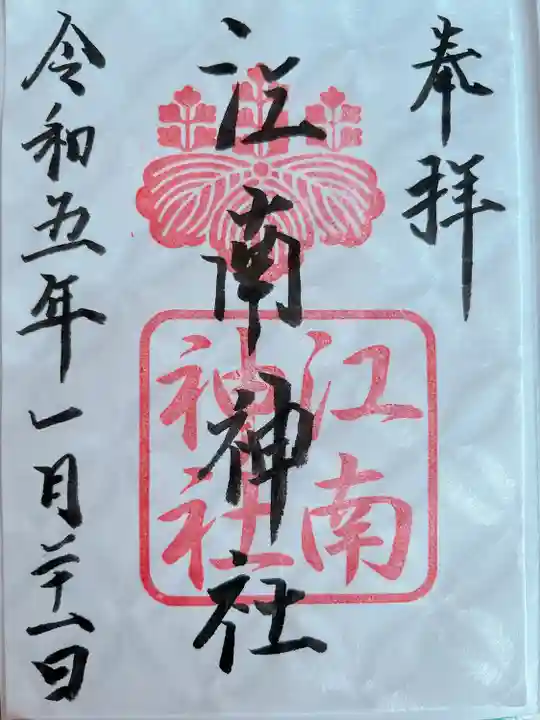 奉拝
江南神社
江南
神社
令和五年一月廿一日